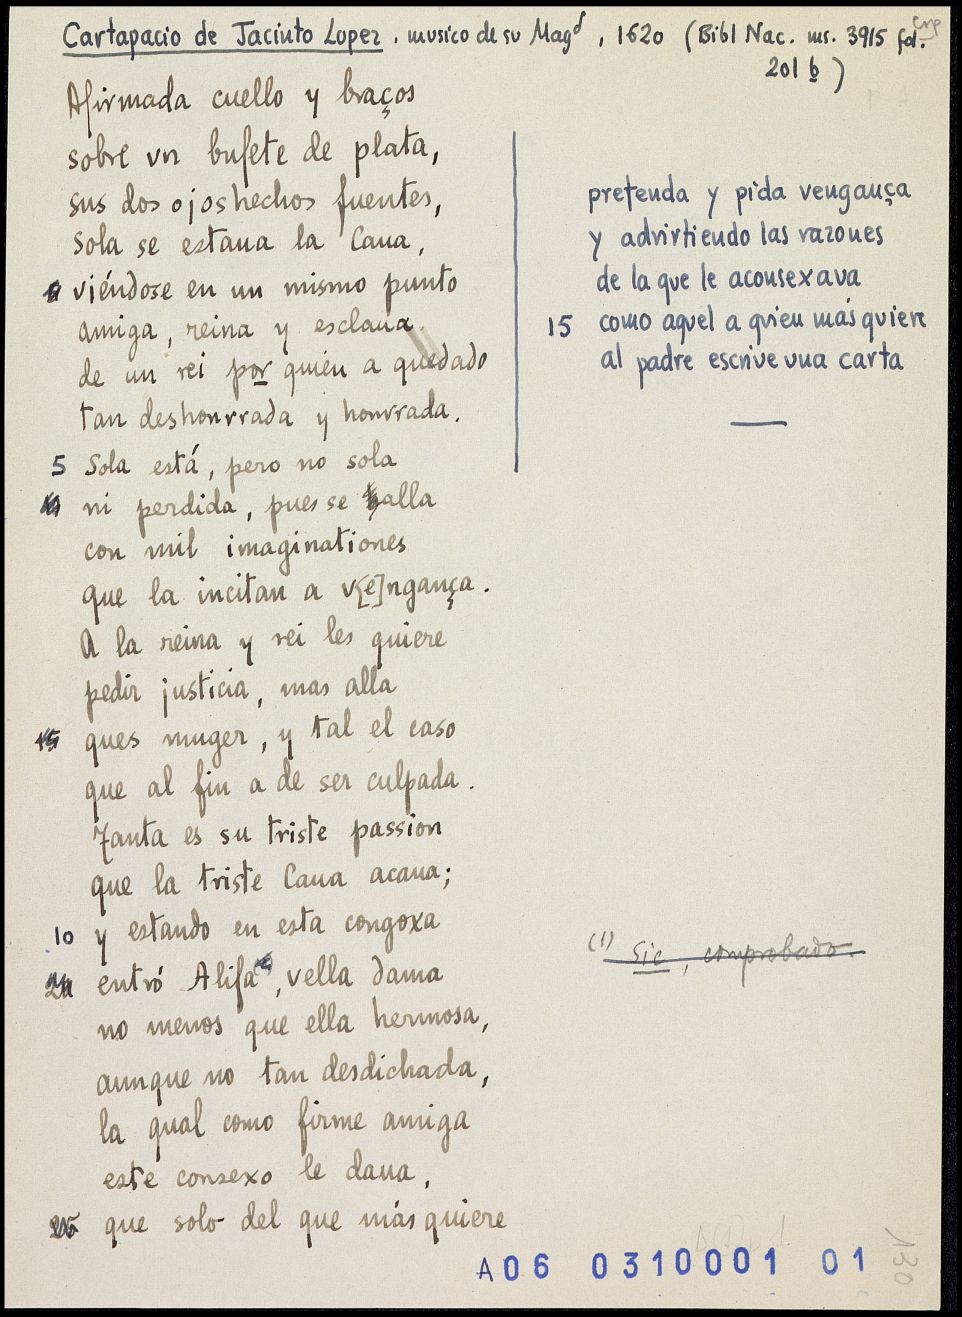 Cartapacio de Jacinto Lopez, musico de su Magd, 1620 (Bibl Nac. ms. 3915 fol.
201 b)
Afirmada cuello y braços
sobre vn bufete de plata,
sus dos ojos hechos fuentes,
sola se estaua la Caua,
viéndose en un mismo punto
amiga, reina y esclaua
de un rei por quién a quedado
tan deshonrrada y honrrada.
5 Sola está, pero no sola
ni perdida, pues se halla
con mil imaginationes
que la incitan a v[e]ngança.
A la reina y rei les quiere
pedir justicia, mas alla
ques muger, y tal el caso
que al fin a de ser culpada.
Tanta es su triste passion
que la triste Caua acaua;
10 y estando en esta congoxa
entró Alifa, vella dama
no menos que ella hermosa,
aunque no tan desdichada,
la qual como firme amiga
este consexo le daua,
que solo del que más quiere
pretenda y pida vengança
y advirtiendo las razones
de la que le aconsexava
15 como aquel a quien más quiere
al padre escrive vna carta
(1) Sic, comprobado.
A06 0310001 01
130